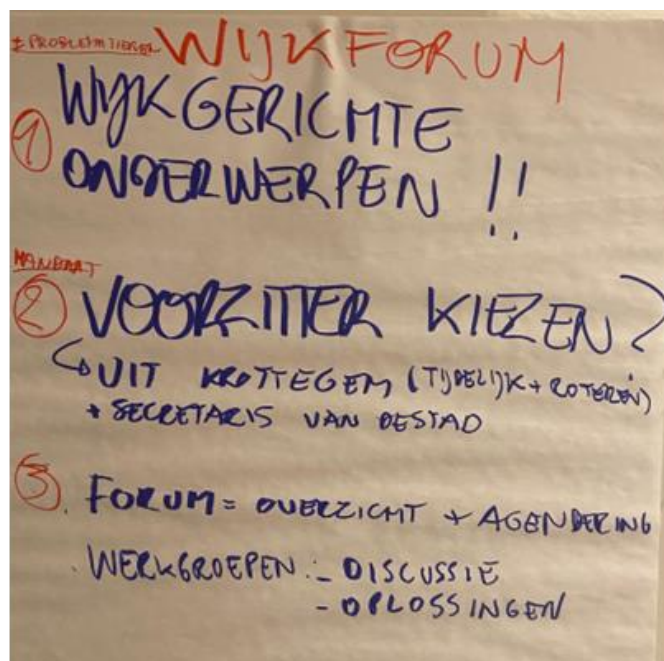 WIJKFORUM
① WIJKGERICHTE
ONDERWERPEN !!
MANDAAT
② VOORZITTER KIEZEN?
↳ UIT KROTTEGEM (TIJDELIJK + ROTEREN)
+ SECRETARIS VAN DE STAD
③ . FORUM = OVERZICHT + AGENDERING
. WERKGROEPEN: - DISCUSSIE
- OPLOSSINGEN